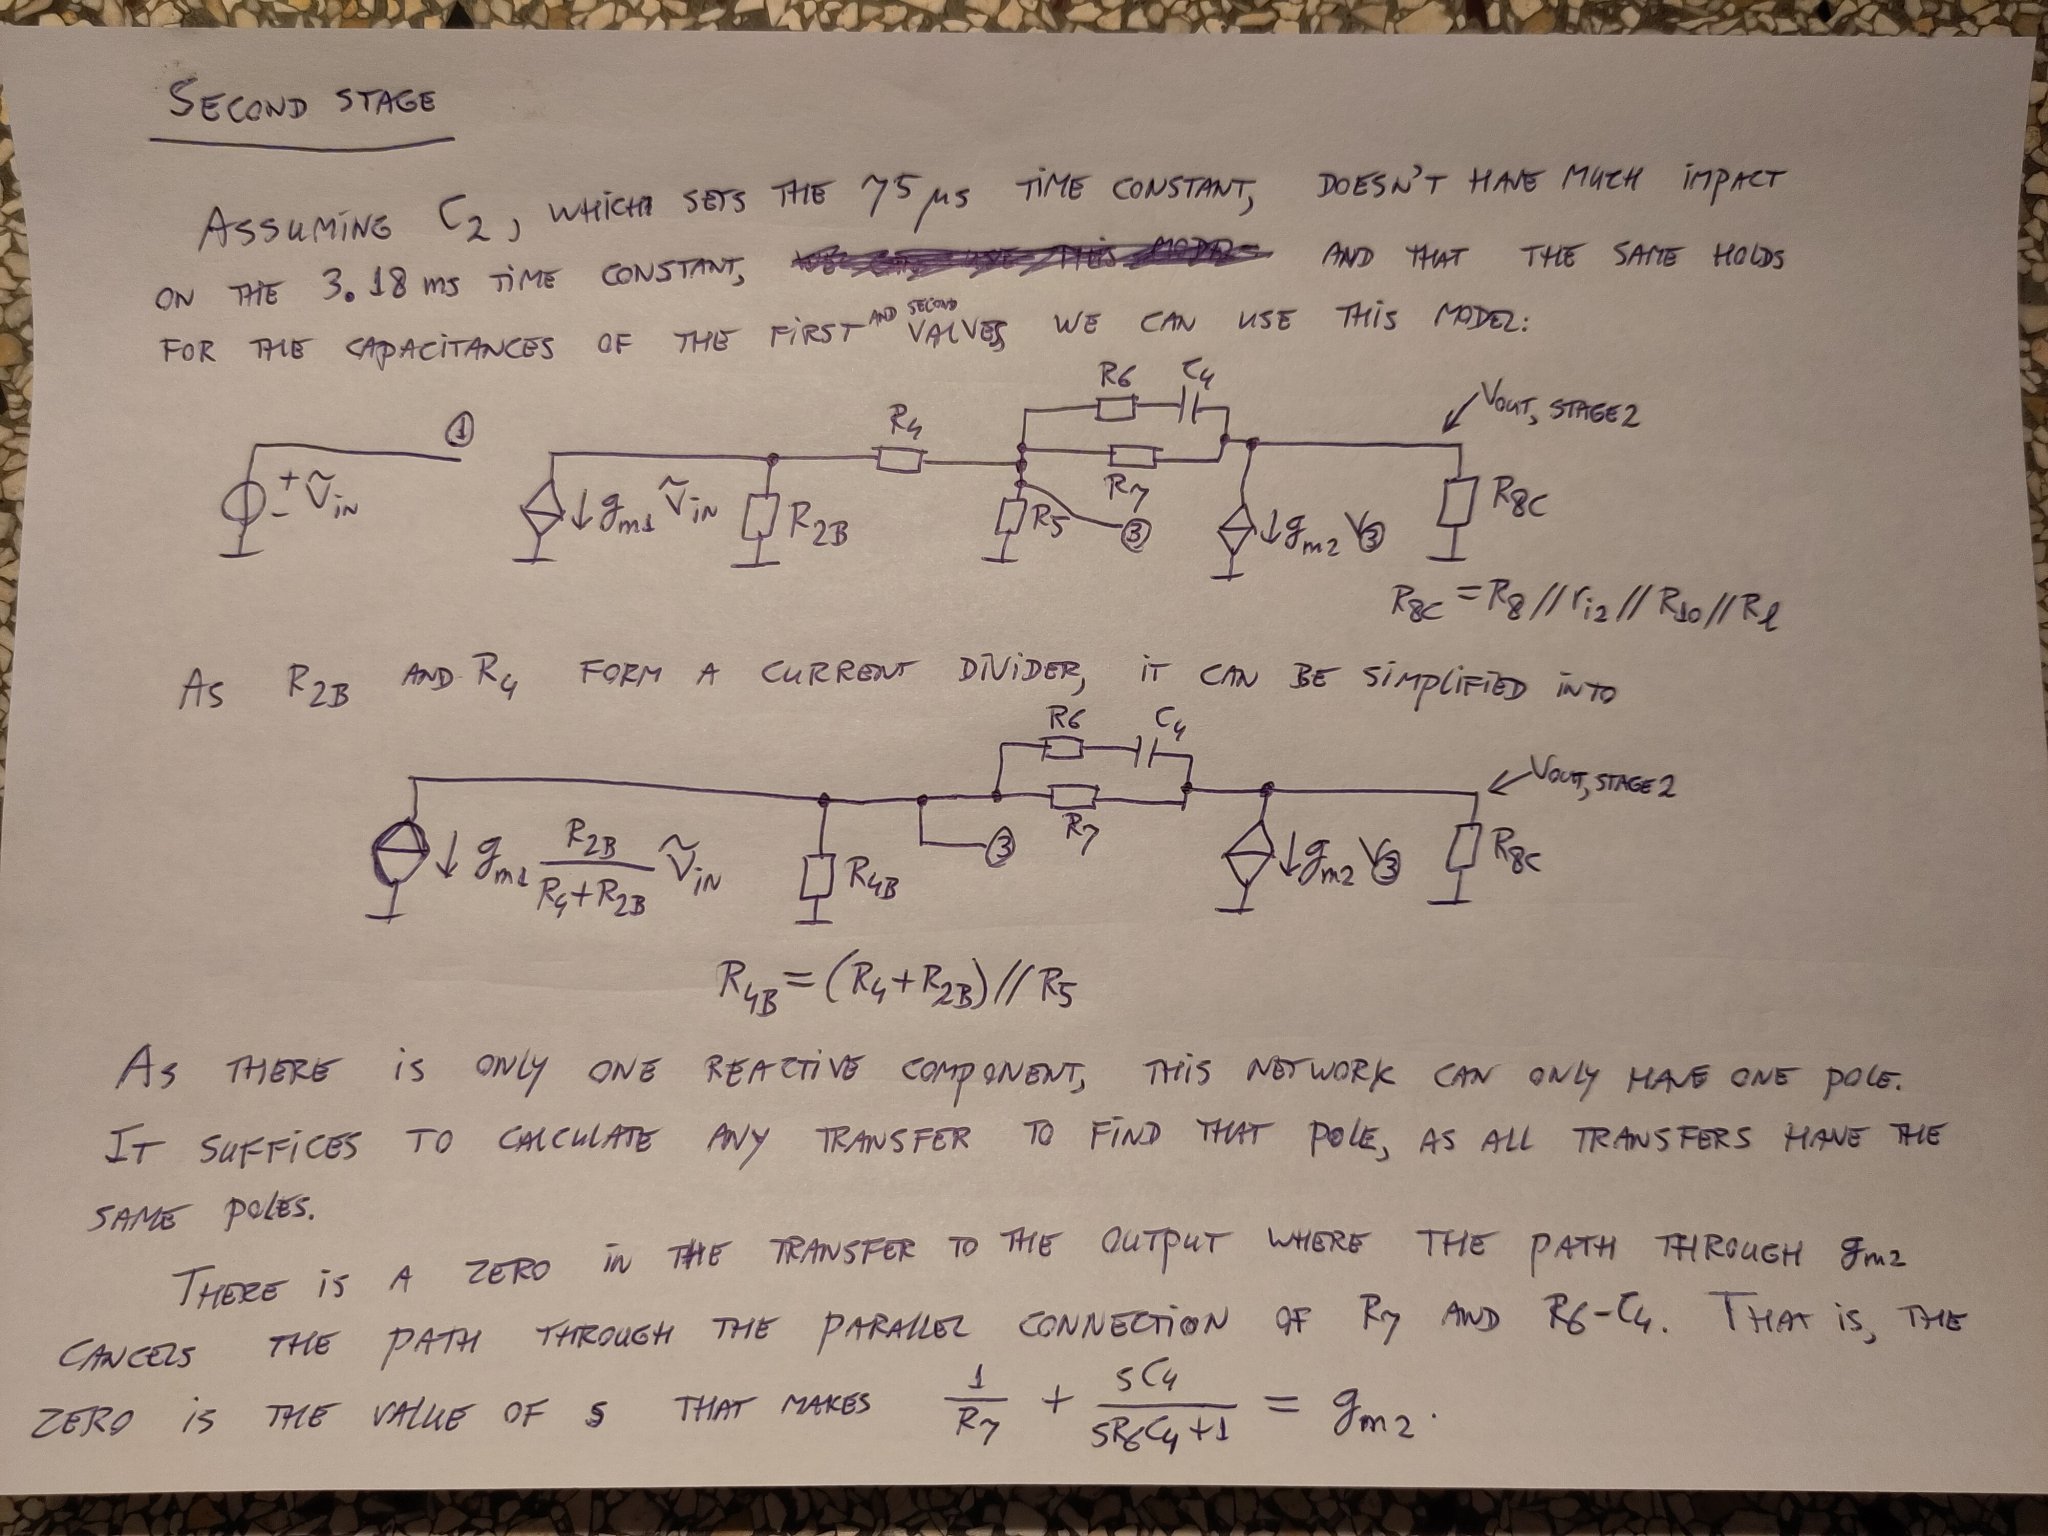 SECOND STAGE
ASSUMING C2, WHICH SETS THE 75 μs TIME CONSTANT, DOESN'T HAVE MUCH IMPACT
ON THE 3.18 ms TIME CONSTANT, AND THAT THE SAME HOLDS
FOR THE CAPACITANCES OF THE FIRST AND SECOND VALVES, WE CAN USE THIS MODEL:
R6 C4
① R4 VOUT, STAGE2
+ - ṽIN ↓ gm1 ṽIN R2B R5 ③ R7 ↓ gm2 V③ R8C
R8C = R8 // ri2 // R10 // Rl
AS R2B AND R4 FORM A CURRENT DIVIDER, IT CAN BE SIMPLIFIED INTO
R6 C4
VOUT, STAGE2
↓ gm1 R2B/(R4+R2B) ṽIN R4B ③ R7 ↓ gm2 V③ R8C
R4B = (R4+R2B) // R5
AS THERE IS ONLY ONE REACTIVE COMPONENT, THIS NETWORK CAN ONLY HAVE ONE POLE.
IT SUFFICES TO CALCULATE ANY TRANSFER TO FIND THAT POLE, AS ALL TRANSFERS HAVE THE
SAME POLES.
THERE IS A ZERO IN THE TRANSFER TO THE OUTPUT WHERE THE PATH THROUGH gm2
CANCELS THE PATH THROUGH THE PARALLEL CONNECTION OF R7 AND R6-C4. THAT IS, THE
ZERO IS THE VALUE OF s THAT MAKES 1/R7 + sC4/(sR6C4+1) = gm2.